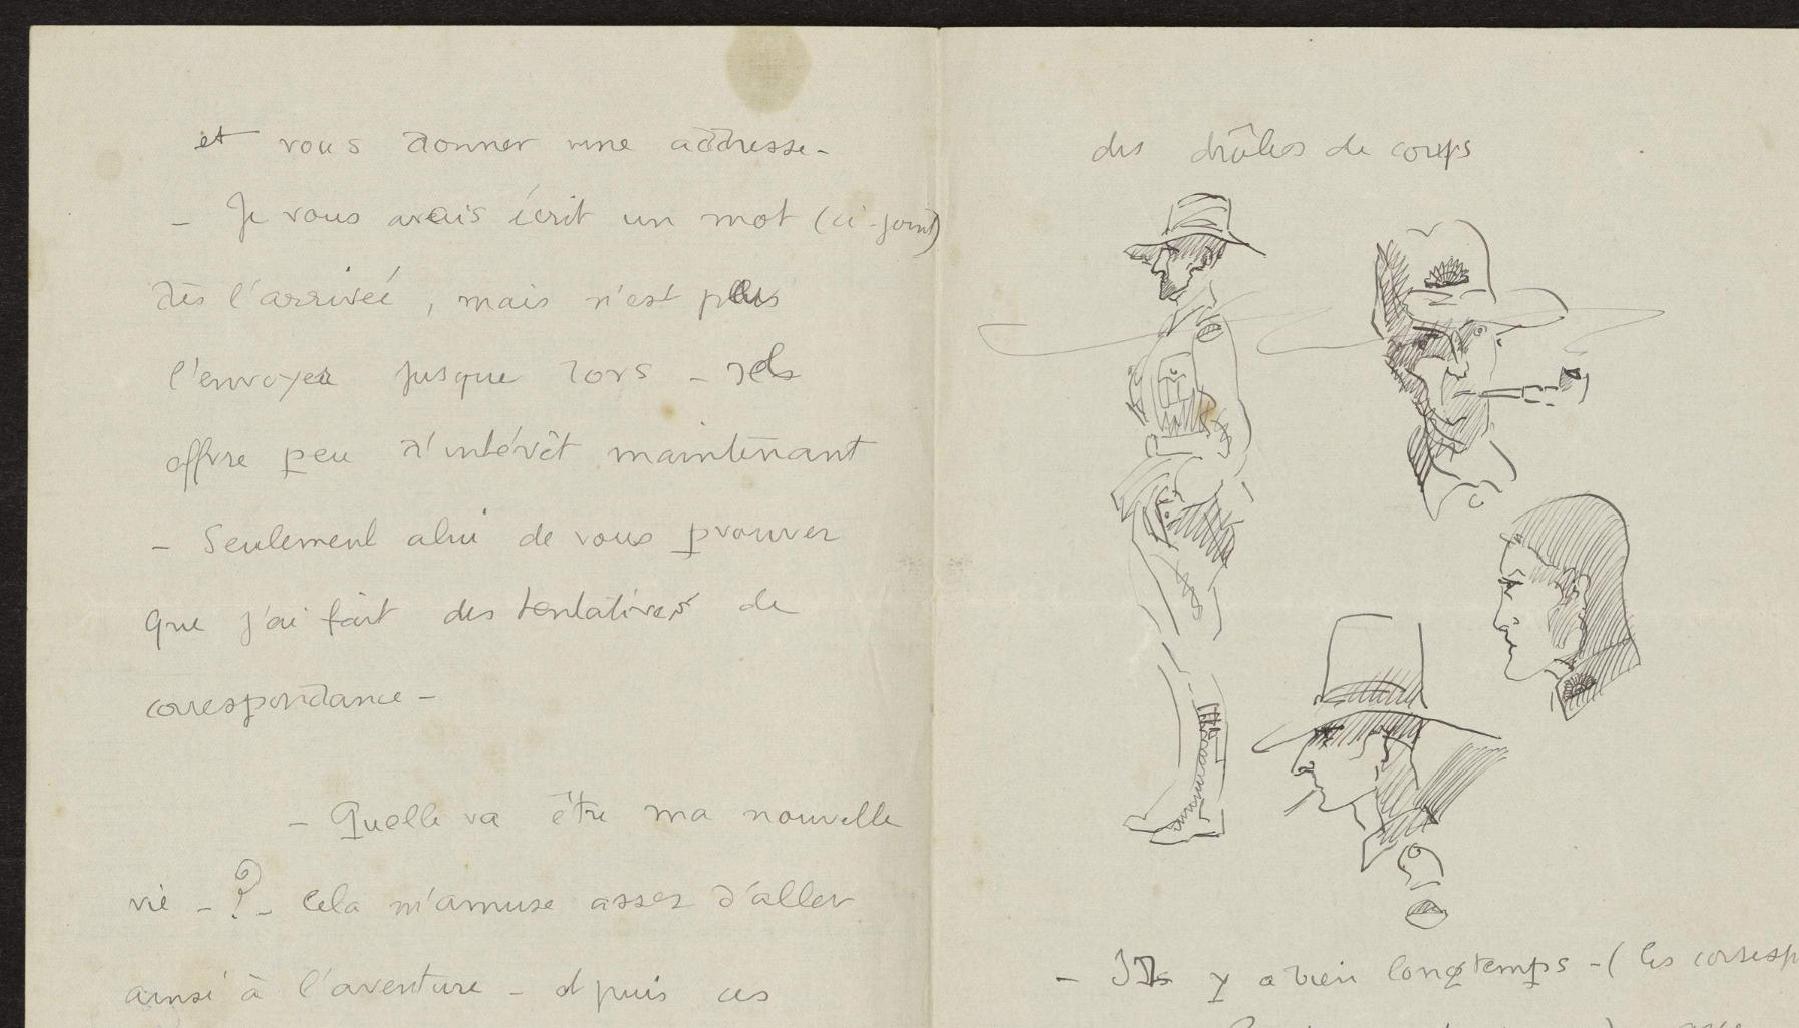 et vous donner une addresse -
- Je vous avais écrit un mot (ci-joint)
dès l'arrivée, mais n'est plus
l'envoyer jusque lors -
offre peu d'intérêt maintenant
- Seulement de vous prouver
que j'ai fait des tentatives de
correspondance -
- Quelle va être ma nouvelle
vie - ? - Cela m'amuse assez d'aller
ainsi à l'aventure - et puis ces
des drôles de corps
- y a bien longtemps - ( les corresp